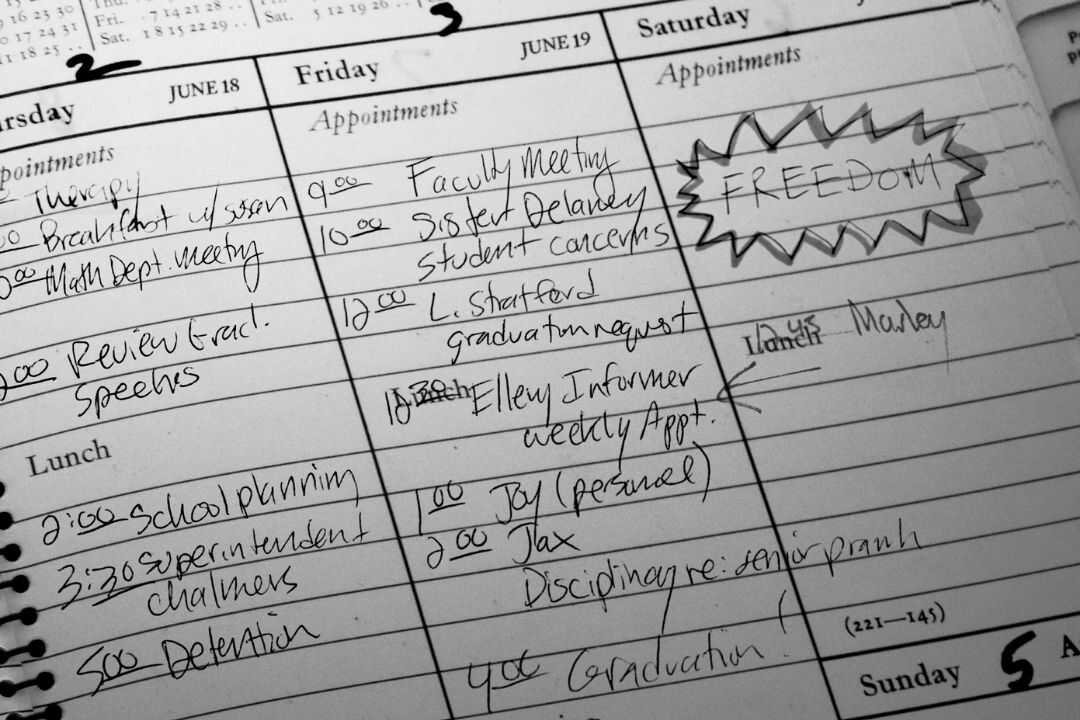 9 16 23 30
0 17 24 31
1 18 25 ..
Fri. . 7 14 21 28 ..
Sat. 1 8 15 22 29 ..
Sat. 5 12 19 26 ..
2
3
rsday JUNE 18
pointments
Therapy
00 Breakfast w/ susan
0:00 Math Dept. meeting
00 Review Grad.
Speeches
Lunch
2:00 School planning
3:30 Superintendent
Chalmers
5:00 Detention
Friday JUNE 19
Appointments
9:00 Faculty Meeting
10:00 Sister Delaney
student concerns
12:00 L. Stratford
graduation request
Lunch
12:30 Ellery Informer
weekly Appt.
1:00 Joy (personal)
2:00 Jax
Disciplinary re: senior prank
4:00 Graduation!
Saturday
Appointments
FREEDOM
Lunch
12:45 Marley
(221—145)
Sunday 5 A